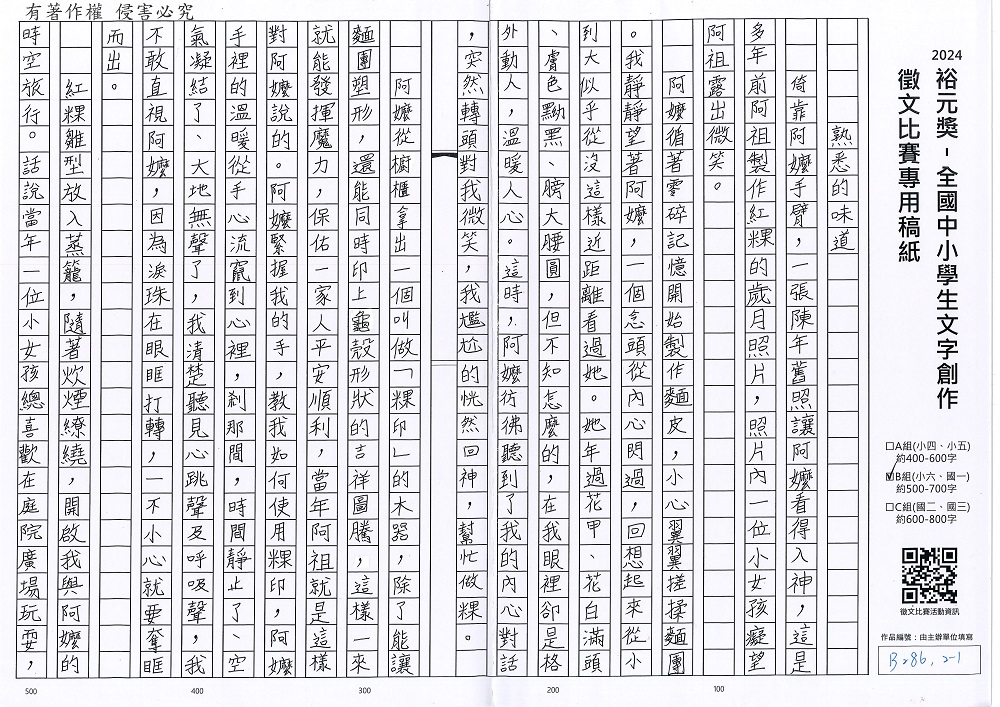 有著作權 侵害必究
2024
裕元獎-全國中小學生文字創作
徵文比賽專用稿紙
□A組(小四、小五)
約400-600字
☑B組(小六、國一)
約500-700字
□C組(國二、國三)
約600-800字
徵文比賽活動資訊
作品編號:由主辦單位填寫
B286,2-1
熟悉的味道
倚靠阿嬤手臂,一張陳年舊照讓阿嬤看得入神,這是
多年前阿祖製作紅粿的歲月照片,照片內一位小女孩癡望
阿祖露出微笑。
阿嬤循著零碎記憶開始製作麵皮,小心翼翼搓揉麵團
。我靜靜望著阿嬤,一個念頭從內心閃過,回想起來從小
到大似乎從沒這樣近距離看過她。她年過花甲、花白滿頭
、膚色黝黑、膀大腰圓,但不知怎麼的,在我眼裡卻是格
外動人,溫暖人心。這時,阿嬤彷彿聽到了我的內心對話
,突然轉頭對我微笑,我尷尬的恍然回神,幫忙做粿。
阿嬤從櫥櫃拿出一個叫做「粿印」的木器,除了能讓
麵團塑形,還能同時印上龜殼形狀的吉祥圖騰,這樣一來
就能發揮魔力,保佑一家人平安順利,當年阿祖就是這樣
對阿嬤說的。阿嬤緊握我的手,教我如何使用粿印,阿嬤
手裡的溫暖從手心流竄到心裡,剎那間,時間靜止了、空
氣凝結了、大地無聲了,我清楚聽見心跳聲及呼吸聲,我
不敢直視阿嬤,因為淚珠在眼眶打轉,一不小心就要奪眶
而出。
紅粿雛型放入蒸籠,隨著炊煙繚繞,開啟我與阿嬤的
時空旅行。話說當年一位小女孩總喜歡在庭院廣場玩耍,
100
200
300
400
500